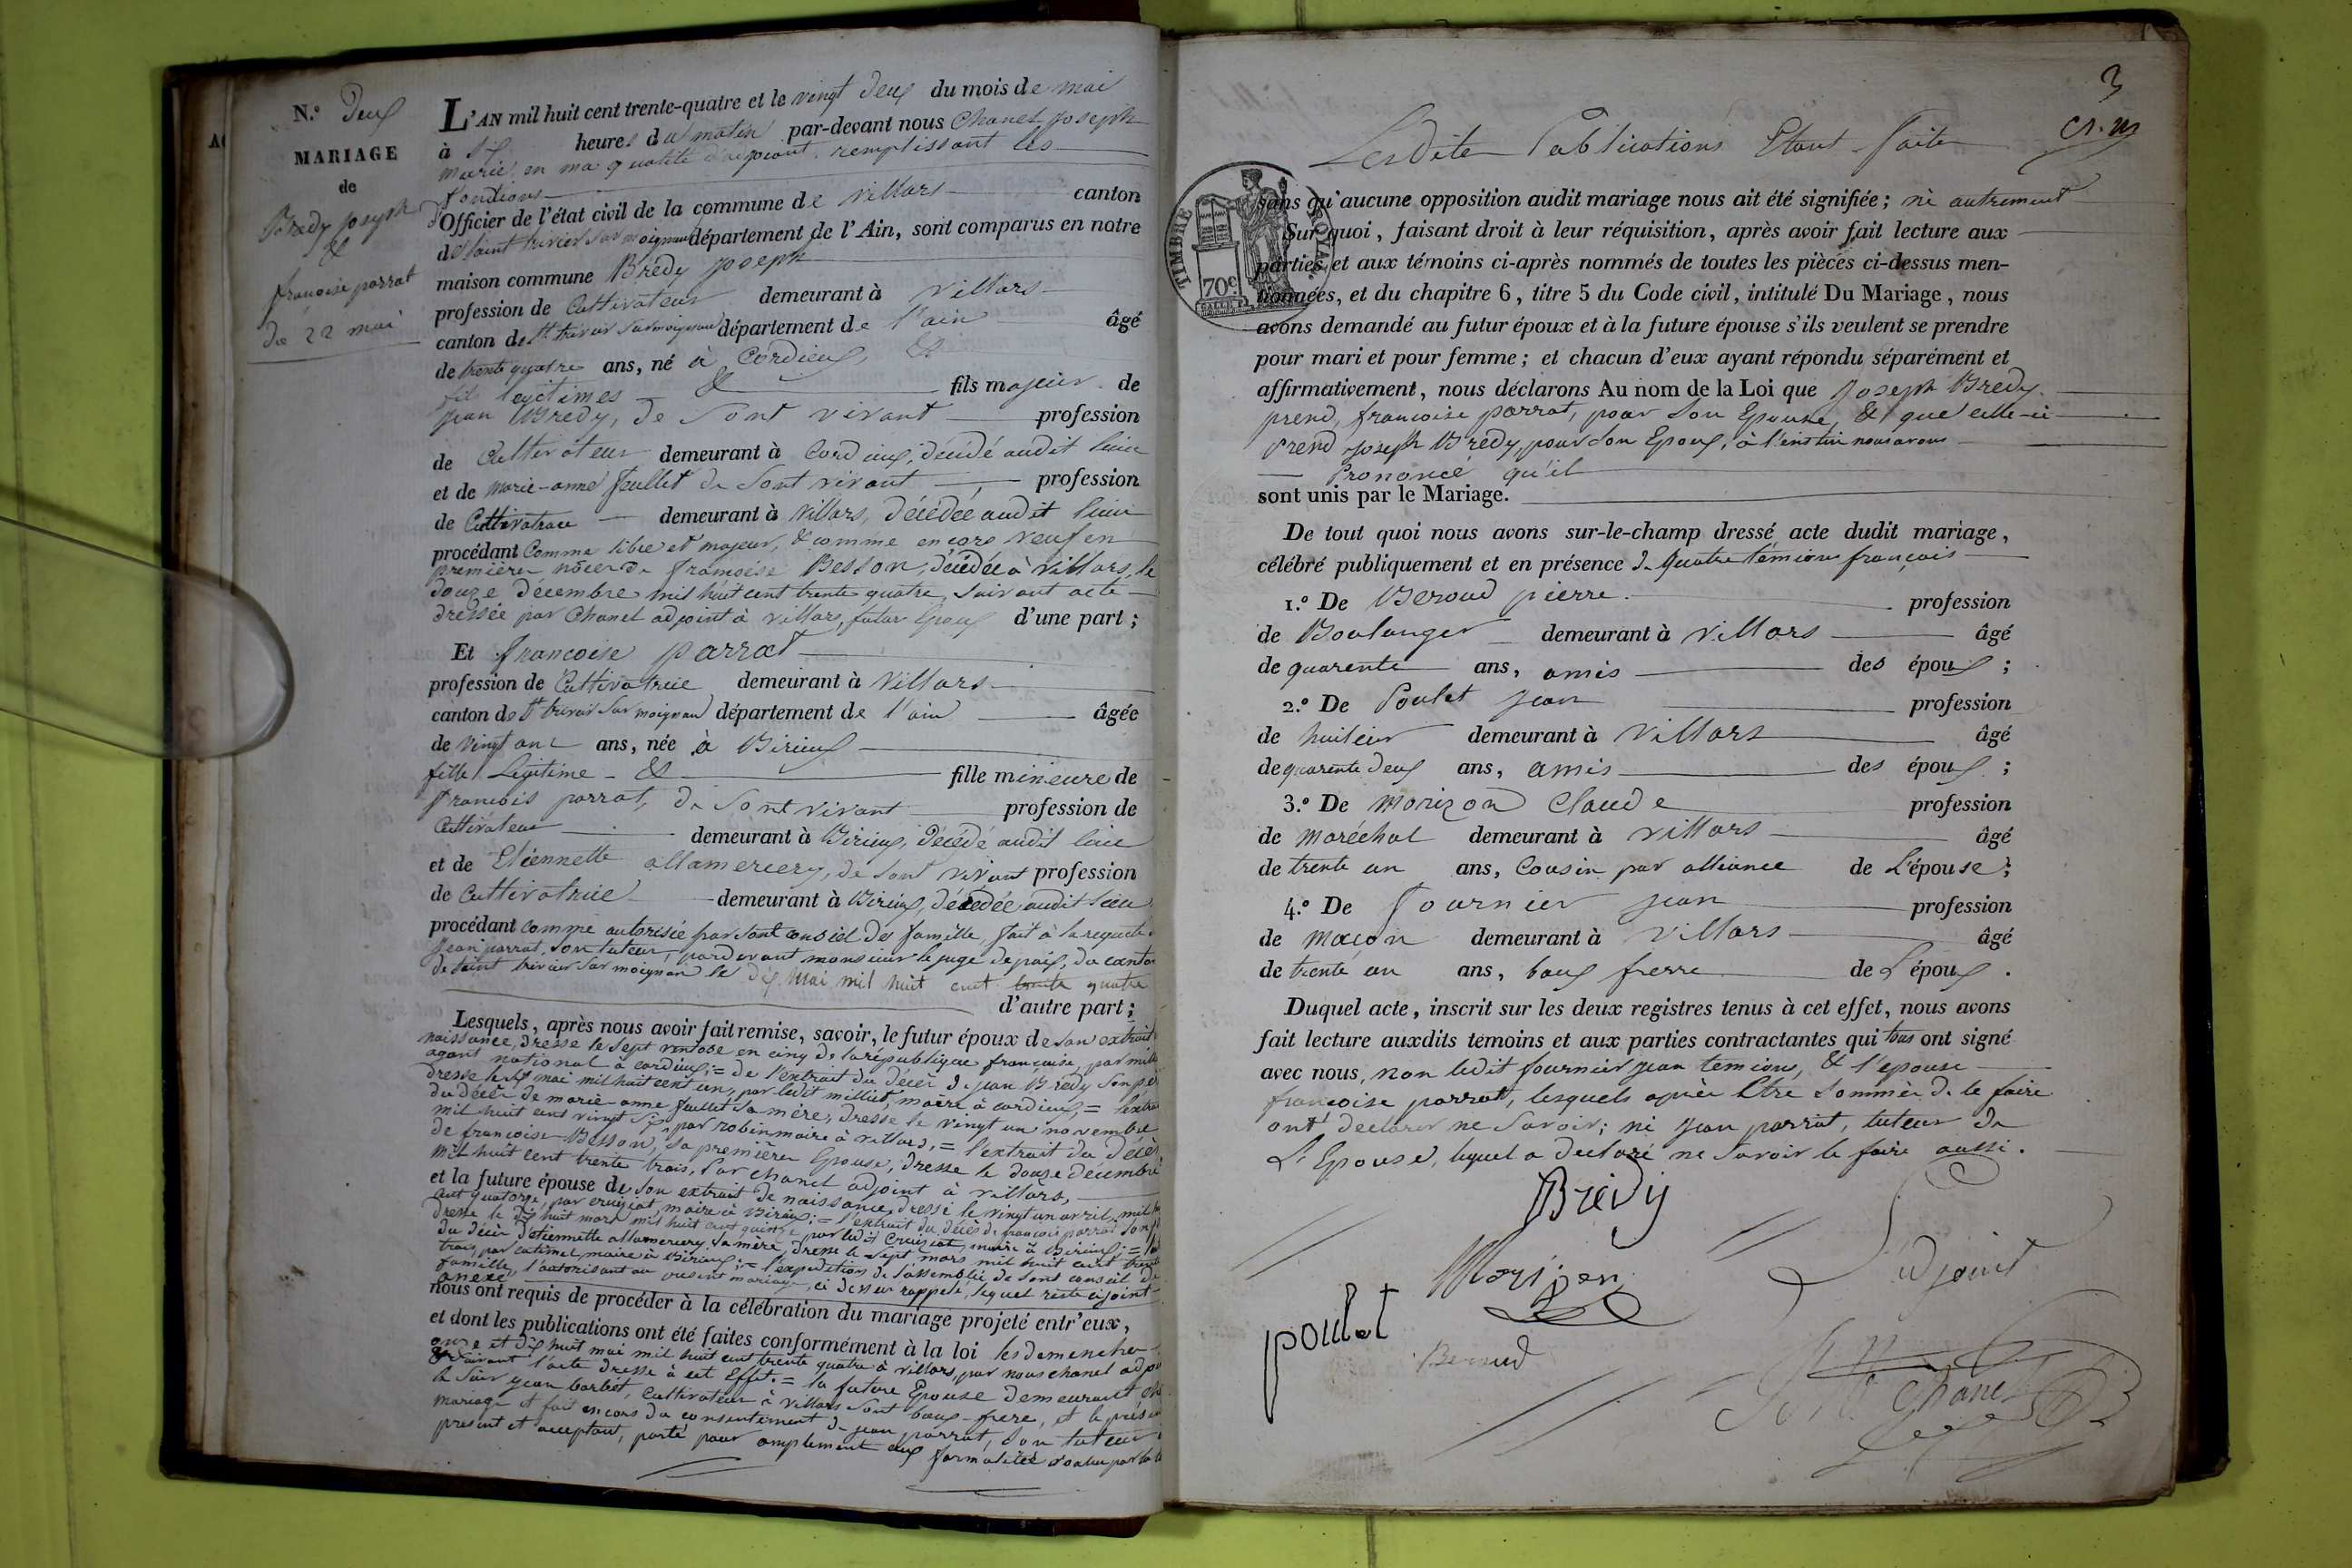 N.° Deux
MARIAGE
de
Bredy joseph
&
françoise parrat
du 22 mai
L'AN mil huit cent trente-quatre et le vingt deux du mois de mai
à six heures du matin par-devant nous Chanel joseph
marie en ma qualité d'adjoint remplissant les
fontions
d'Officier de l'état civil de la commune de villars canton
de saint trivier sur moignand département de l'Ain, sont comparus en notre
maison commune Bredy joseph
profession de Cultivateur demeurant à villars
canton de st trivier sur moignand département de l'ain âgé
de trente quatre ans, né à Cordieux, &
fils legitimes & fils majeur de
jean Bredy, de sont vivant profession
de Cultivateur demeurant à Cordieux, décédé audit lieu
et de marie-anne feullet de sont vivant profession
de Cultivatrice demeurant à villars, décédée audit lieu
procédant Comme libre et majeur, & comme encore veuf en
première nôces de françoise Besson, décédée à villars, le
douze décembre mil huit cent trente quatre, suivant acte
dressée par Chanel adjoint à villars, futur Epoux d'une part;
Et françoise parrat
profession de Cultivatrice demeurant à villars
canton de st trivier sur moignand département de l'ain âgée
de vingt ans, née à Birieux
fille Légitime - & fille mineure de
françois parrat, de sont vivant profession de
Cultivateur demeurant à Birieux, décédé audit lieu
et de Etiennette allamercery, de sont vivant profession
de Cultivatrice demeurant à Birieux, décédée audit lieu
procédant comme autorisée par sont conseil des famille, fait à la requete
jean parrat, son tuteur, pardevant monsieur le juge de paix, du canton
de saint trivier sur moignand le dix mai mil huit cent trente quatre
d'autre part;
Lesquels, après nous avoir fait remise, savoir, le futur époux de son extrait
naissance, dresse le sept ventose en cinq de la république françoise, par
agant national à cordieux; = de l'extrait du décès de jean Bredy son
dresse le mai mil huit cent un, par ledit milliet, maire à cordieux, =
du décès de marie anne feullet sa mère, dresse le vingt un novembre
mil huit cent vingt six, par robin maire à villars, = l'extrait du décès
de françoise Besson, sa première Epouse, dresse le douze décembre
mil huit cent trente trois, par chanel adjoint à villars,
et la future épouse de son extrait de naissance, dresse le vingt un avril mil
cent quatorze par cruiziat, maire à Birieux; = l'extrait du décès de françois parrat son
dresse le dix huit mars mil huit cent quinze, par ledit Cruiziat, maire à Birieux; =
du décès d'etiennette allamercery sa mère, dresse le sept mars mil huit cent
trois, par maire à Birieux; = l'expedition de l'assemblée de sont conseil de
famille, l'autorisant au present mariage, ci dessus rappelé, lequel reste cijoint
anexé
nous ont requis de procéder à la célébration du mariage projeté entr'eux,
et dont les publications ont été faites conformément à la loi les demenche
onze et dix huit mai mil huit cent trente quatre à villars, par nous chanel
suivant l'acte dresse à cet Effet. = la future Epouse demeurant
le sieur jean barbet, Cultivateur à villars sont baux-frere, et le
mariage et fait encore du consentement de jean parrat, son tuteur
present et acceptant, porté pour amplement aux formalités
3
Lesdite Publications Etant faite
TIMBRE ROYAL
70c
sans qu'aucune opposition audit mariage nous ait été signifiée; ni autrement
Sur quoi, faisant droit à leur réquisition, après avoir fait lecture aux
parties et aux témoins ci-après nommés de toutes les pièces ci-dessus men-
tionnées, et du chapitre 6, titre 5 du Code civil, intitulé Du Mariage, nous
avons demandé au futur époux et à la future épouse s'ils veulent se prendre
pour mari et pour femme; et chacun d'eux ayant répondu séparément et
affirmativement, nous déclarons Au nom de la Loi que Joseph Bredy
prend, françoise parrat, pour son Epouse, & que celle-ci
prend joseph Bredy, pour son Epoux, à l'instin nous avons
Prononcé qu'il
sont unis par le Mariage.
De tout quoi nous avons sur-le-champ dressé acte dudit mariage,
célébré publiquement et en présence de quatre témions français
1.° De Beroud pierre profession
de Boulanger demeurant à villars âgé
de quarente ans, amis des époux;
2.° De Poulet jean profession
de huileur demeurant à villars âgé
de quarente deux ans, amis des époux;
3.° De Morizon Claude profession
de maréchal demeurant à villars âgé
de trente un ans, Cousin par alliance de L'épouse;
4.° De fournier jean profession
de maçon demeurant à villars âgé
de trente un ans, baux frerre de L'époux.
Duquel acte, inscrit sur les deux registres tenus à cet effet, nous avons
fait lecture auxdits témoins et aux parties contractantes qui tous ont signé
avec nous, non ledit fournier jean temions, & l'epouse
françoise parrat, lesquels après Etre sommer de le faire
ont declarer ne savoir; ni jean parrat, tuteur de
L'Epouse, lequel a declaré ne savoir le faire aussi.
Brédy
Morizon
L'adjoint
poulet
Beroud
Chanel